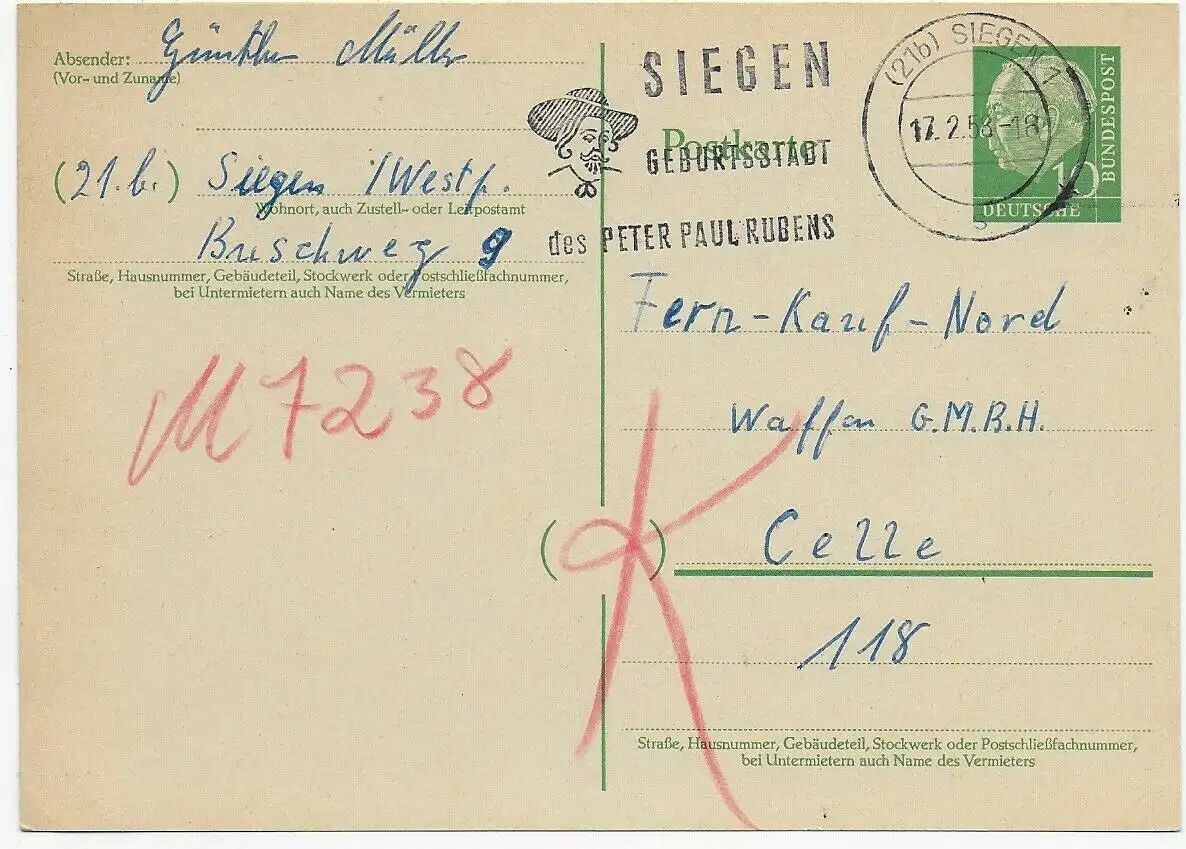 Absender: Günther Müller
(Vor- und Zuname)
(21.b.) Siegen /Westf.
Wohnort, auch Zustell- oder Leitpostamt
Buschweg 9
Straße, Hausnummer, Gebäudeteil, Stockwerk oder Postschließfachnummer,
bei Untermietern auch Name des Vermieters
M 7238
SIEGEN
Postkarte
GEBURTSSTADT
des PETER PAUL RUBENS
(21b) SIEGEN 1
17.2.58-18
s
10
DEUTSCHE
BUNDESPOST
Fern-Kauf-Nord
Waffen G.M.B.H.
(K) Celle
118
Straße, Hausnummer, Gebäudeteil, Stockwerk oder Postschließfachnummer,
bei Untermietern auch Name des Vermieters